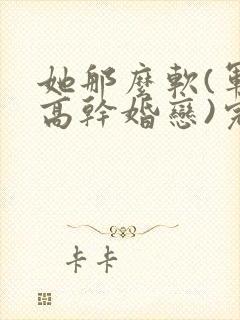 她那麼軟(軍
高幹婚戀)完
卡卡